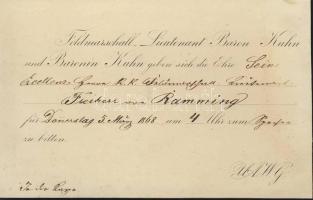 Feldmarschall-Lieutenant Baron Kuhn
und Baronin Kuhn geben sich die Ehre Sein
Excellenz Herrn K.K. Feldmarschall Lieutenant
Freiherr von Ramming
für Donerstag 5 März 1868 um 4 Uhr zum Speisen
zu bitten.
U.A.W.G.